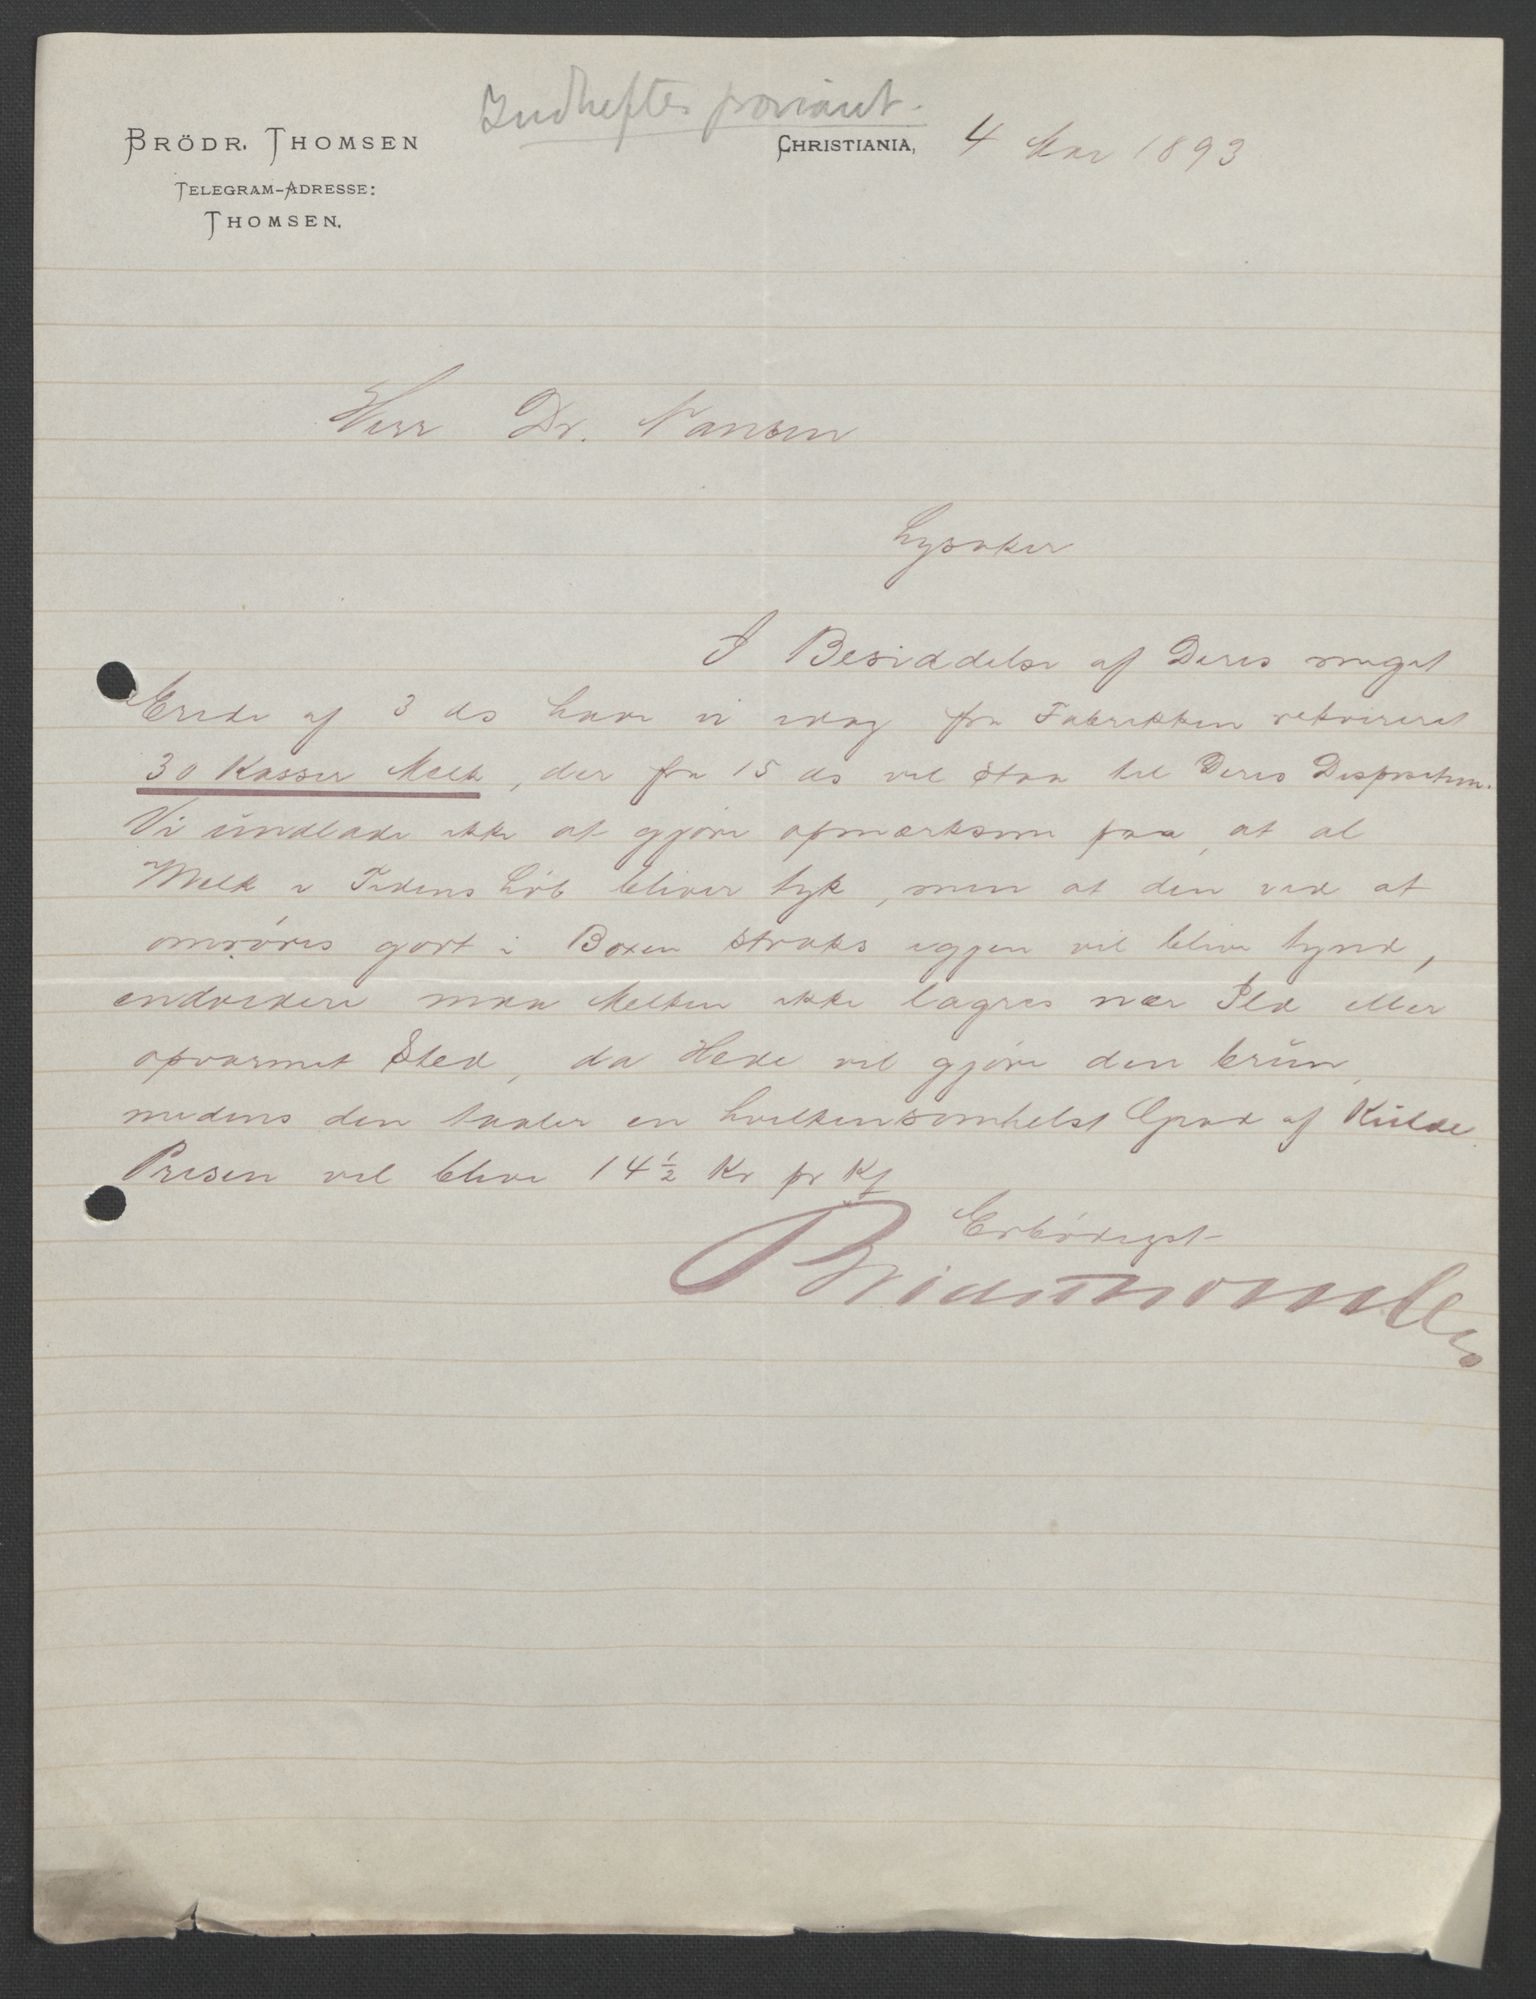 Indheftes proviant.
BRÖDR. THOMSEN
TELEGRAM-ADRESSE:
THOMSEN.
CHRISTIANIA, 4 Mar 1893
Herr Dr. Nansen
Lysaker
I Besiddelse af Deres meget
Ærede af 3 ds have vi idag fra Fabrikken rekvireret
30 Kasser Melk, der fra 15 ds vil staa til Deres Disposition.
Vi undlade ikke at gjøre opmærksom paa, at al
Melk i Tidens Löb bliver tyk, men at den ved at
omröres godt i Boxen straks iggjen vil blive tynd,
endvidere maa Melken ikke lagres nær Ild eller
opvarmet Sted, da Hede vil gjöre den brun,
medens den taaler en hvilkensomhelst Grad af Kulde.
Prisen vil blive 14 1/2 Kr pr Ks
Erbödigst
Brödr Thomsen